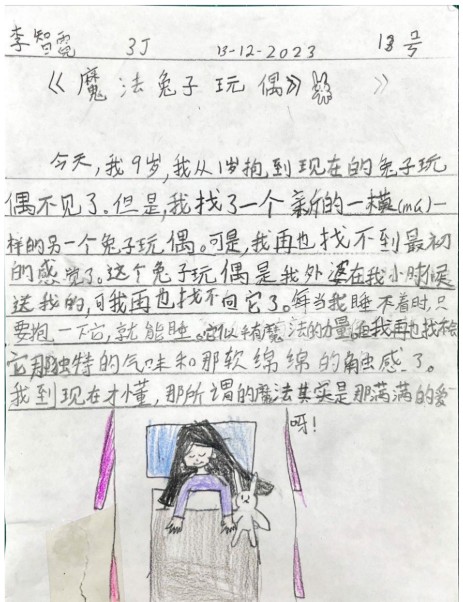 李智霓 3J 13-12-2023 13号
《魔法兔子玩偶》 》
今天,我9岁,我从1岁抱到现在的兔子玩
偶不见了。但是,我找了一个新的一模(ma)一
样的另一个兔子玩偶。可是,我再也找不到最初
的感觉了。这个兔子玩偶是我外婆在我小时候
送我的,可我再也找不回它了。每当我睡不着时,只
要抱一下它,就能睡。它似乎有魔法的力量。但我再也找不
它那独特的气味和那软绵绵的触感了。
我到现在才懂,那所谓的魔法其实是那满满的爱
呀!